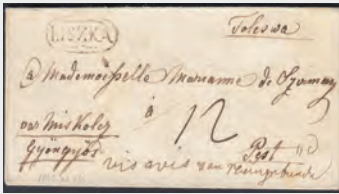 LISZKA
Toleswa
a Mademoiselle Marianne de Szirmay
à
12
per Miskolcz
Gyöngyös
Pest
vis a vis